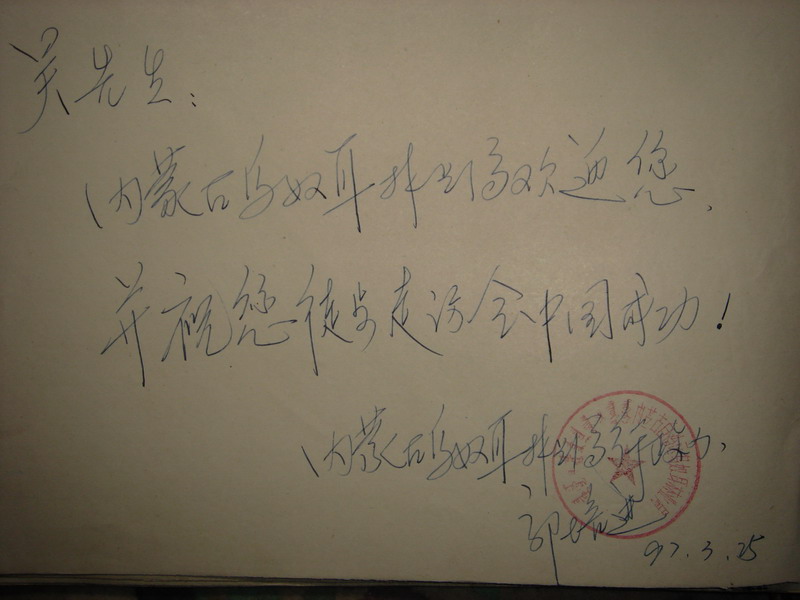 吴先生:
内蒙古乌奴耳林场欢迎您、
并祝您徒步走访全中国成功!
内蒙古乌奴耳林
97.3.25